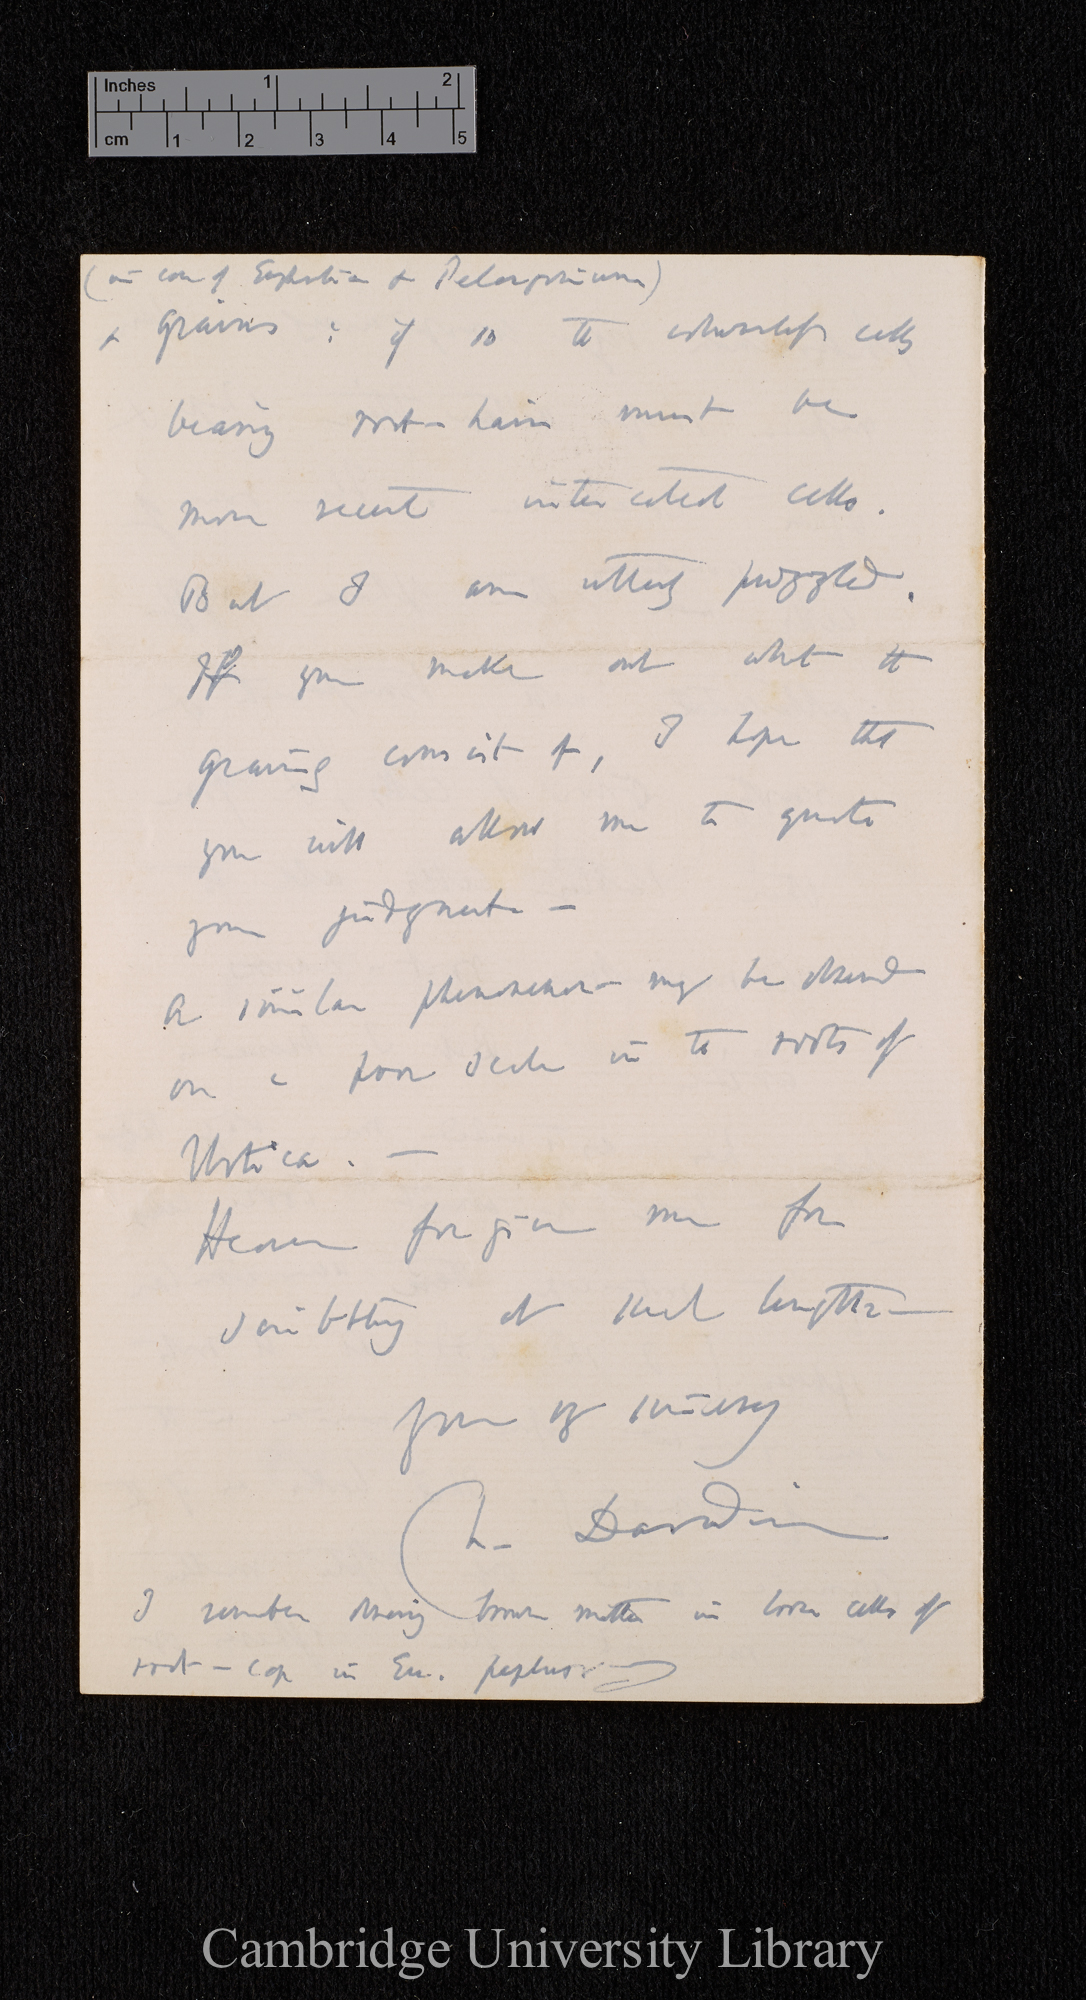 Inches 1 2
cm 1 2 3 4 5
(in case of Euphorbia & Pelargonium)
& grains: if so the colourless cells
bearing root-hairs must be
more recent cells.
But I am utterly puzzled.
If you make out what the
grains consist of, I hope that
you will allow me to quote
your judgment —
A similar phenomenon may be observed
on a poor scale in the roots of
Urtica. —
Heaven forgive me for
scribbling at such length —
yours very sincerely
Ch. Darwin
I remember observing brown matter in loose cells of
root-cap in Eu. peplus
Cambridge University Library